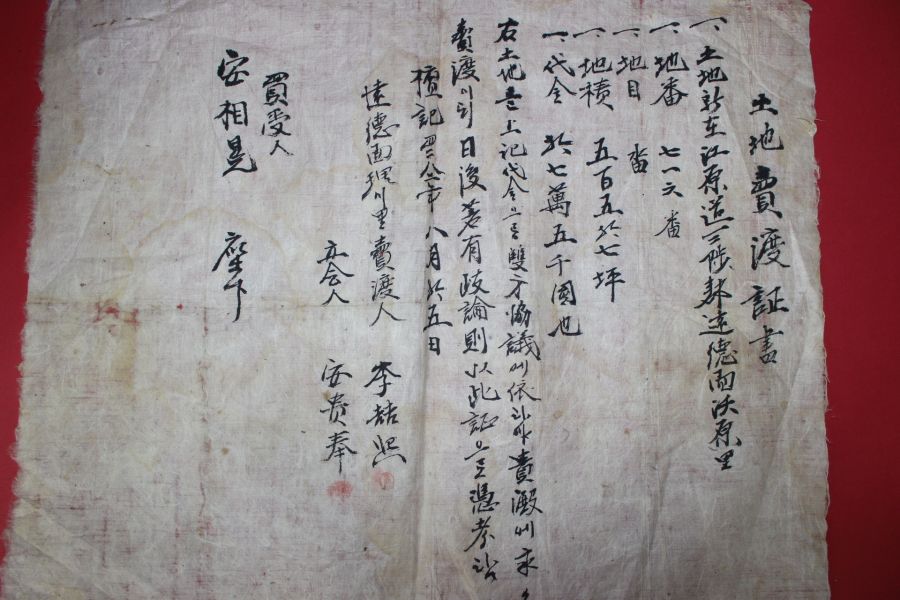 土地賣渡証書
一、土地所在江原道三陟郡遠德面沃原里
一、地番 七一六番
一、地目 畓
一、地積 五百五拾七坪
一、代金 拾七萬五千圜也
右土地를上記代金으로雙方協議에依하야賣渡
賣渡이되日後若有歧論則以此証으로憑考하
檀記 八月拾五日
遠德面 里賣渡人 李喆熙
立会人 安貴奉
買受人
安相晃 座下